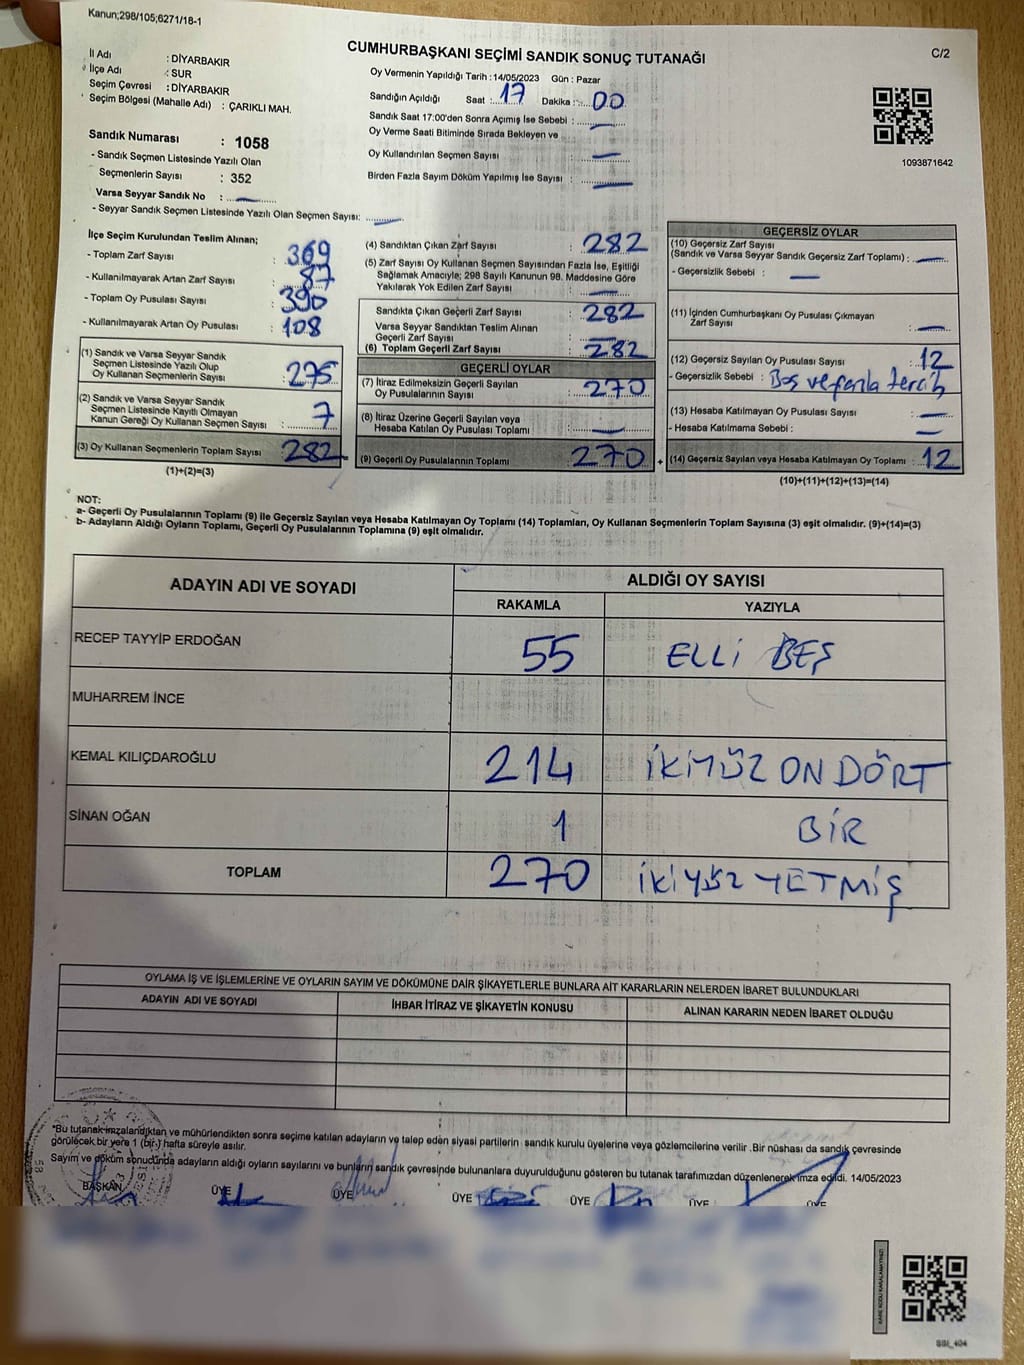 Kanun;298/105;6271/18-1
CUMHURBAŞKANI SEÇİMİ SANDIK SONUÇ TUTANAĞI
C/2
İl Adı : DİYARBAKIR
İlçe Adı : SUR
Seçim Çevresi : DİYARBAKIR
Seçim Bölgesi (Mahalle Adı) : ÇARIKLI MAH.
Sandık Numarası : 1058
- Sandık Seçmen Listesinde Yazılı Olan
Seçmenlerin Sayısı : 352
Varsa Seyyar Sandık No :
- Seyyar Sandık Seçmen Listesinde Yazılı Olan Seçmen Sayısı:
Oy Vermenin Yapıldığı Tarih : 14/05/2023 Gün : Pazar
Sandığın Açıldığı Saat : 17 Dakika : 00
Sandık Saat 17:00'den Sonra Açımış İse Sebebi :
Oy Verme Saati Bitiminde Sırada Bekleyen ve
Oy Kullandırılan Seçmen Sayısı :
Birden Fazla Sayım Döküm Yapılmış İse Sayısı :
1093871642
İlçe Seçim Kurulundan Teslim Alınan;
- Toplam Zarf Sayısı : 369
- Kullanılmayarak Artan Zarf Sayısı : 87
- Toplam Oy Pusulası Sayısı : 390
- Kullanılmayarak Artan Oy Pusulası : 108
(1) Sandık ve Varsa Seyyar Sandık
Seçmen Listesinde Yazılı Olup
Oy Kullanan Seçmenlerin Sayısı : 275
(2) Sandık ve Varsa Seyyar Sandık
Seçmen Listesinde Kayıtlı Olmayan
Kanun Gereği Oy Kullanan Seçmen Sayısı : 7
(3) Oy Kullanan Seçmenlerin Toplam Sayısı : 282
(1)+(2)=(3)
(4) Sandıktan Çıkan Zarf Sayısı : 282
(5) Zarf Sayısı Oy Kullanan Seçmen Sayısından Fazla İse, Eşitliği
Sağlamak Amacıyle; 298 Sayılı Kanunun 98. Maddesine Göre
Yakılarak Yok Edilen Zarf Sayısı :
Sandıkta Çıkan Geçerli Zarf Sayısı : 282
Varsa Seyyar Sandıktan Teslim Alınan
Geçerli Zarf Sayısı :
(6) Toplam Geçerli Zarf Sayısı : 282
GEÇERLİ OYLAR
(7) İtiraz Edilmeksizin Geçerli Sayılan
Oy Pusulalarının Sayısı : 270
(8) İtiraz Üzerine Geçerli Sayılan veya
Hesaba Katılan Oy Pusulası Toplamı :
(9) Geçerli Oy Pusulalarının Toplamı : 270
GEÇERSİZ OYLAR
(10) Geçersiz Zarf Sayısı
(Sandık ve Varsa Seyyar Sandık Geçersiz Zarf Toplamı) :
- Geçersizlik Sebebi :
(11) İçinden Cumhurbaşkanı Oy Pusulası Çıkmayan
Zarf Sayısı :
(12) Geçersiz Sayılan Oy Pusulası Sayısı : 12
- Geçersizlik Sebebi : Boş ve fazla tercih
(13) Hesaba Katılmayan Oy Pusulası Sayısı :
- Hesaba Katılmama Sebebi :
+ (14) Geçersiz Sayılan veya Hesaba Katılmayan Oy Toplamı : 12
(10)+(11)+(12)+(13)=(14)
NOT:
a- Geçerli Oy Pusulalarının Toplamı (9) ile Geçersiz Sayılan veya Hesaba Katılmayan Oy Toplamı (14) Toplamları, Oy Kullanan Seçmenlerin Toplam Sayısına (3) eşit olmalıdır. (9)+(14)=(3)
b- Adayların Aldığı Oyların Toplamı, Geçerli Oy Pusulalarının Toplamına (9) eşit olmalıdır.
ADAYIN ADI VE SOYADI
ALDIĞI OY SAYISI
RAKAMLA YAZIYLA
RECEP TAYYİP ERDOĞAN 55 ELLİ BEŞ
MUHARREM İNCE
KEMAL KILIÇDAROĞLU 214 İKİYÜZ ON DÖRT
SİNAN OĞAN 1 BİR
TOPLAM 270 İKİYÜZ YETMİŞ
OYLAMA İŞ VE İŞLEMLERİNE VE OYLARIN SAYIM VE DÖKÜMÜNE DAİR ŞİKAYETLERLE BUNLARA AİT KARARLARIN NELERDEN İBARET BULUNDUKLARI
ADAYIN ADI VE SOYADI İHBAR İTİRAZ VE ŞİKAYETİN KONUSU ALINAN KARARIN NEDEN İBARET OLDUĞU
"Bu tutanak imzalandıktan ve mühürlendikten sonra seçime katılan adayların ve talep eden siyasi partilerin sandık kurulu üyelerine veya gözlemcilerine verilir .Bir nüshası da sandık çevresinde
görülecek bir yere 1 (bir.) hafta süreyle asılır.
Sayım ve döküm sonucunda adayların aldığı oyların sayılarını ve bunların sandık çevresinde bulunanlara duyurulduğunu gösteren bu tutanak tarafımızdan düzenlenerek imza edildi. 14/05/2023
BAŞKAN ÜYE ÜYE ÜYE ÜYE ÜYE ÜYE
SSI_404